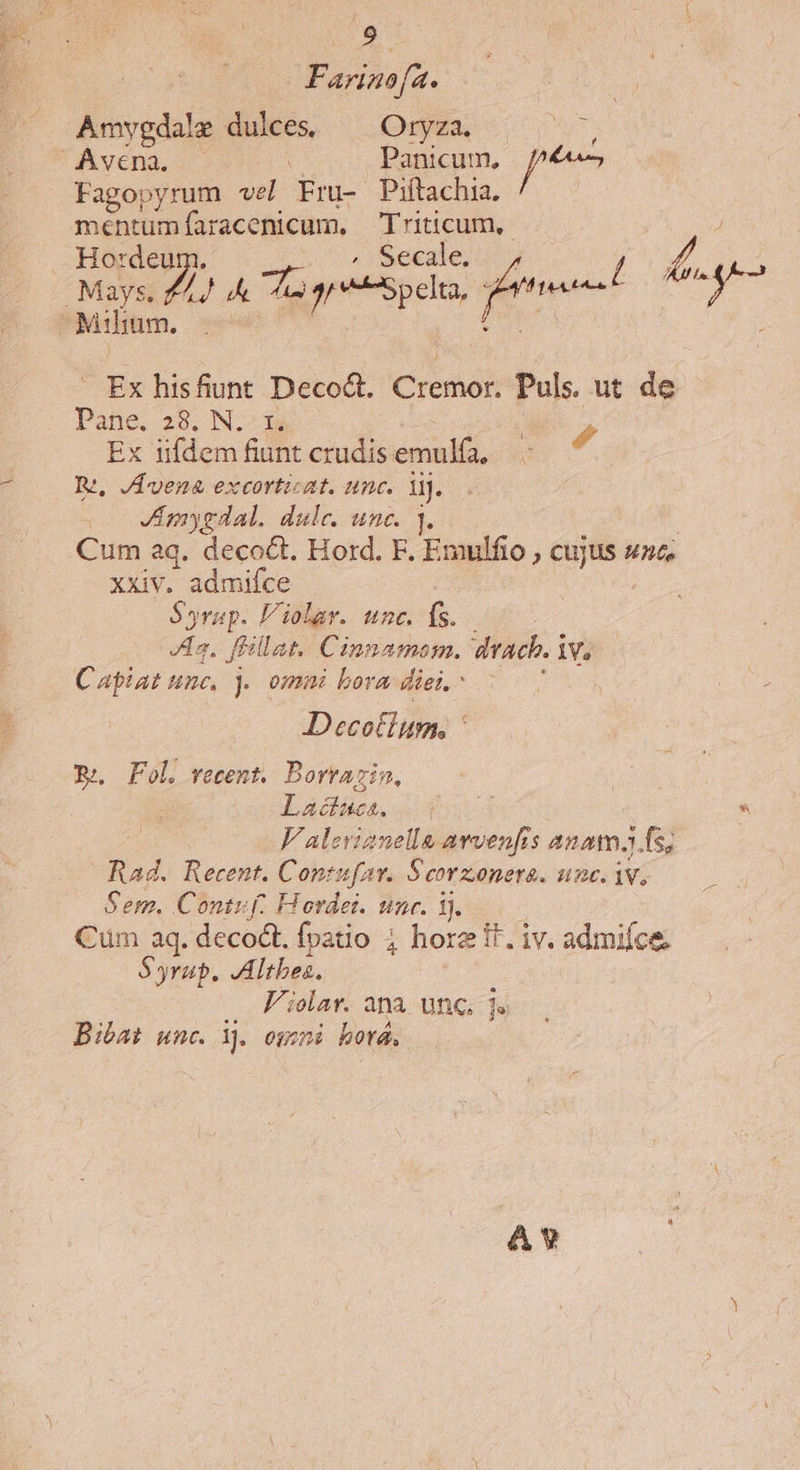 9
Farinoſa.
Amygdalæ dulces. Oryza.
Avena. Panicum.
Fagopyrum vel Fru- Piſtachia.
mentum ſaracenicum. Triticum.
Hordeum. Secale.
Mays. Spelta.
Milium.
Ex his fiunt Decoct. Cremor. Puls. ut de
Pane. 28. N. 1.
Ex iiſdem fiunt crudis emulſa.
℞. Avenæ excorticat. unc. iij.
Amygdal. dulc. unc. j.
Cum aq. decoct. Hord. F. Emulſio, cujus unc.
xxiv. admiſce
Syrup. Violar. unc. ſs.
Aq. ſtillat. Cinnamom. drach. iv.
Capiat unc. j. omni hora diei.
Decoctum.
℞. Fol. recent. Borragin.
Lactuca.
Valerianellæ arvenſis ana m.j.ſs.
Rad. Recent. Contuſar. Scorzoneræ. unc. iv.
Sem. Contuſ. Hordei. unc. ij.
Cum aq. decoct. ſpatio ½ horæ ℔. iv. admiſce.
Syrup. Altheæ.
Violar. ana unc. j.
Bibat unc. ij. omni horâ.